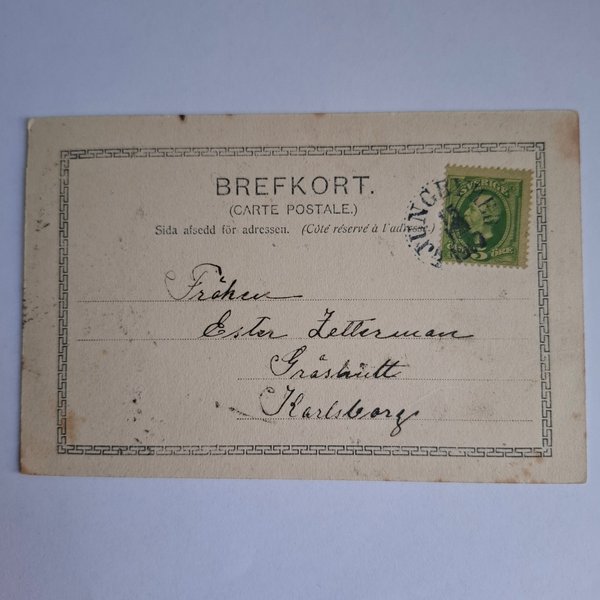 BREFKORT.
(CARTE POSTALE.)
Sida afsedd för adressen. (Côté réservé à l'adresse)
SVERIGE
5
Fröken
Ester Zetterman
Gråshult
Karlsborg